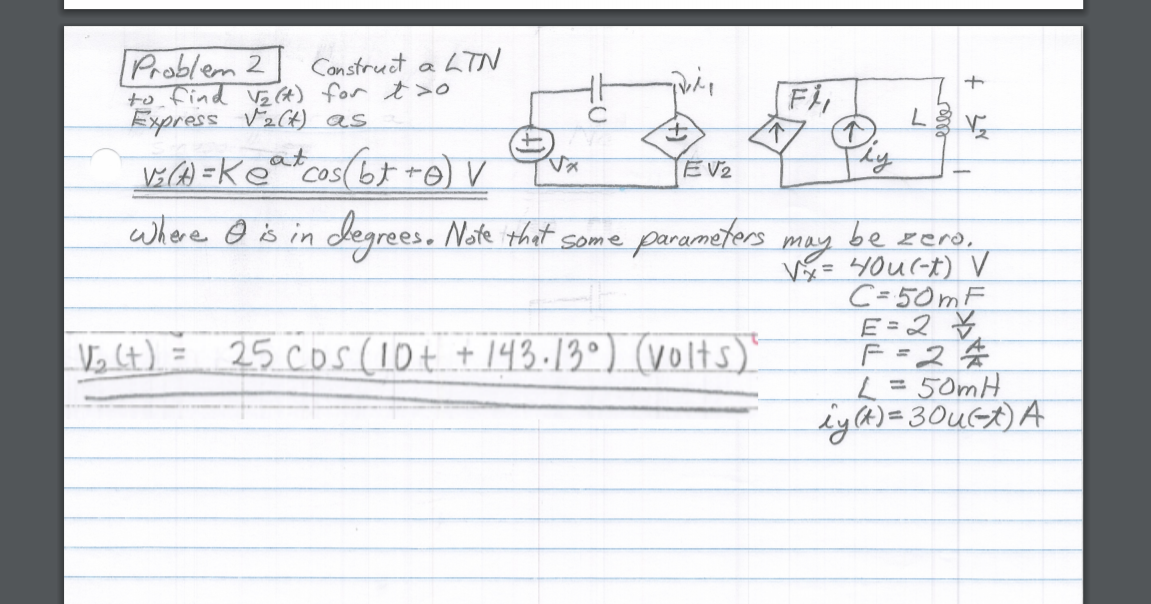 Problem 2 Construct a LTN
to find v₂(t) for t>0
Express v₂(t) as
v₂(t)=Ke^at cos(bt+θ) V
C
i₁
+
-
Vx
+
-
E V₂
F i₁
iy
L
+
V₂
-
where θ is in degrees. Note that some parameters may be zero.
Vx = 40u(-t) V
C=50mF
E=2 V/V
F=2 A/A
L = 50mH
iy(t)=30u(-t) A
V₂(t) = 25 cos(10t +143.13°) (volts)